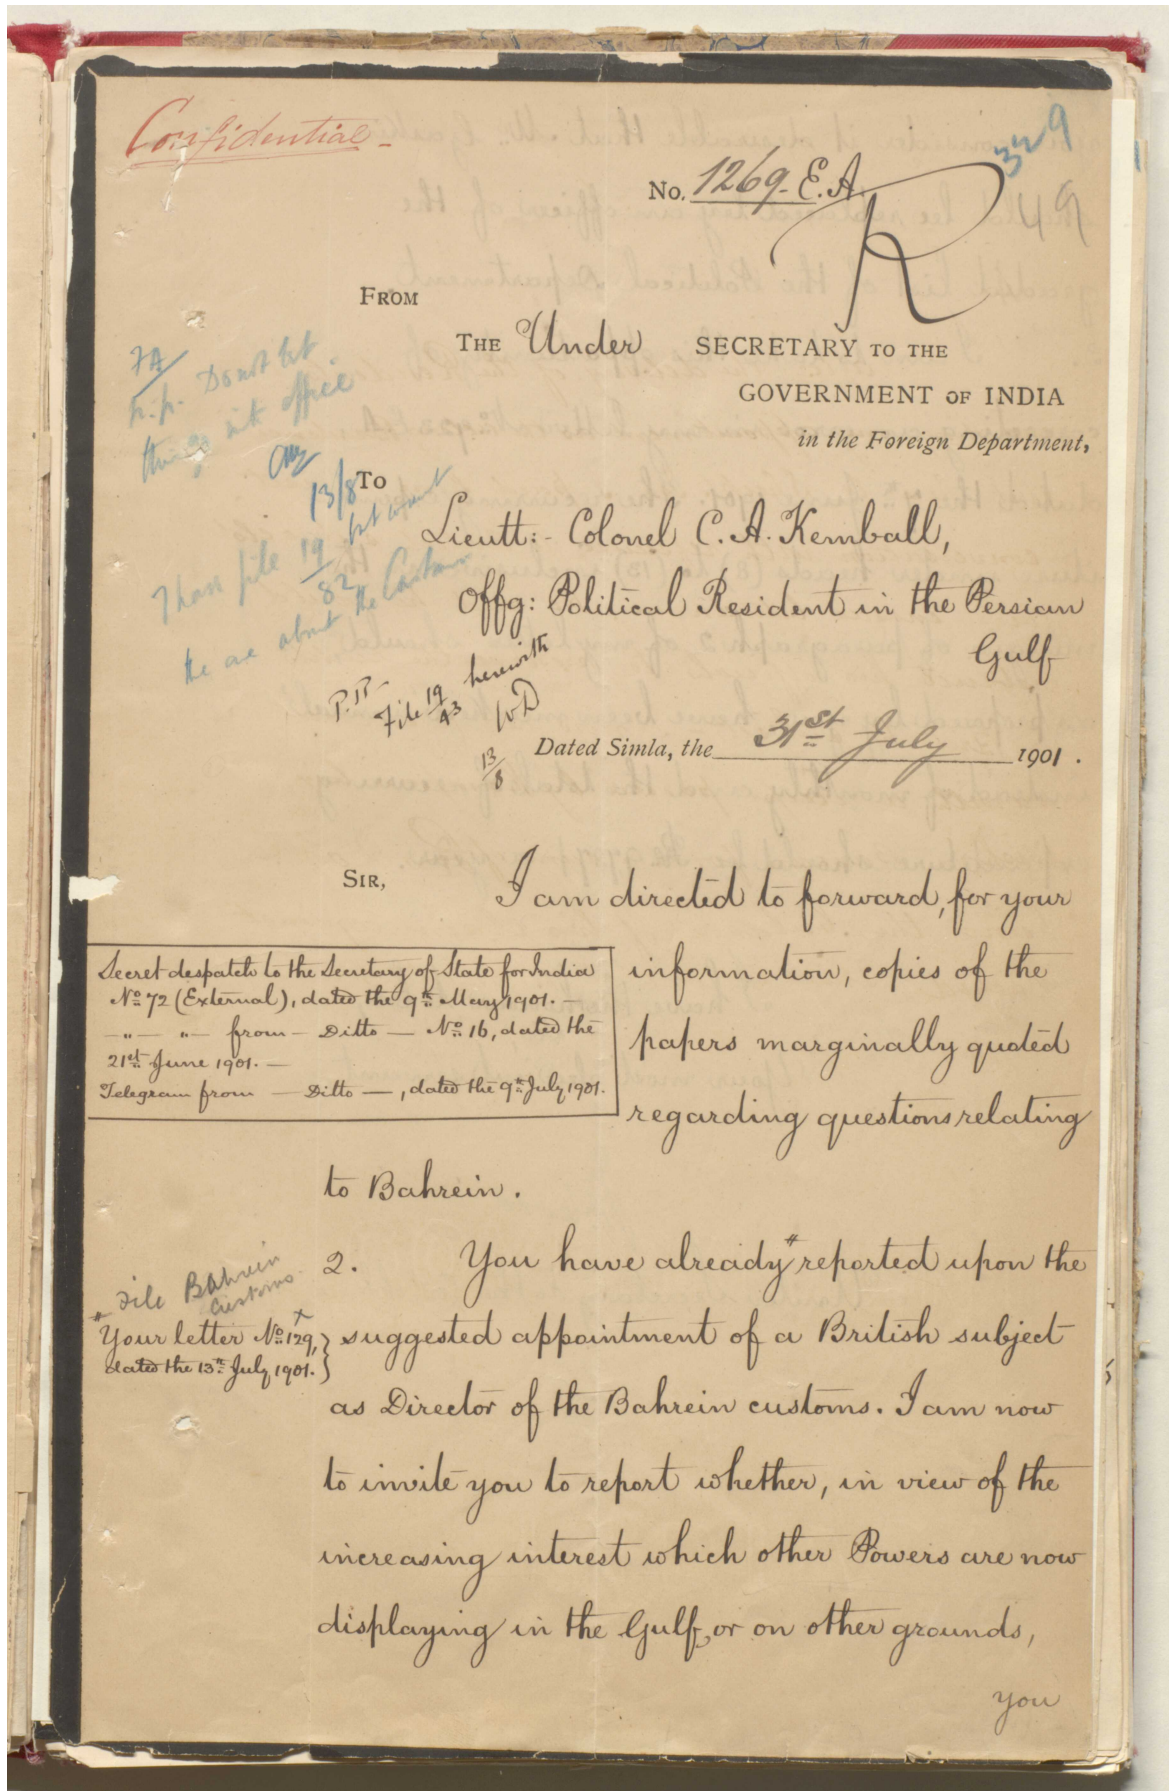 Confidential -
329
49
No. 1269. E.A.
R
FROM
THE Under SECRETARY TO THE
GOVERNMENT OF INDIA
in the Foreign Department,
p.p. Do not let
this office
13/8
To
Lieutt:- Colonel C. A. Kemball,
Offg: Political Resident in the Persian
Gulf
I have file 19/82 but want
the one about the Customs
P.R.
File 19/43 herewith
13/8
Dated Simla, the 31st July 1901.
SIR,
I am directed to forward, for your
information, copies of the
papers marginally quoted
regarding questions relating
to Bahrein.
Secret despatch to the Secretary of State for India
No 72 (External), dated the 9th May 1901. -
-"- "- from - Ditto - No 16, dated the
21st June 1901. -
Telegram from - Ditto -, dated the 9th July 1901.
2. You have already* reported upon the
suggested appointment of a British subject
as Director of the Bahrein customs. I am now
to invite you to report whether, in view of the
increasing interest which other Powers are now
displaying in the Gulf, or on other grounds,
you
File Bahrein
Customs
* Your letter No 129, x
dated the 13th July 1901.